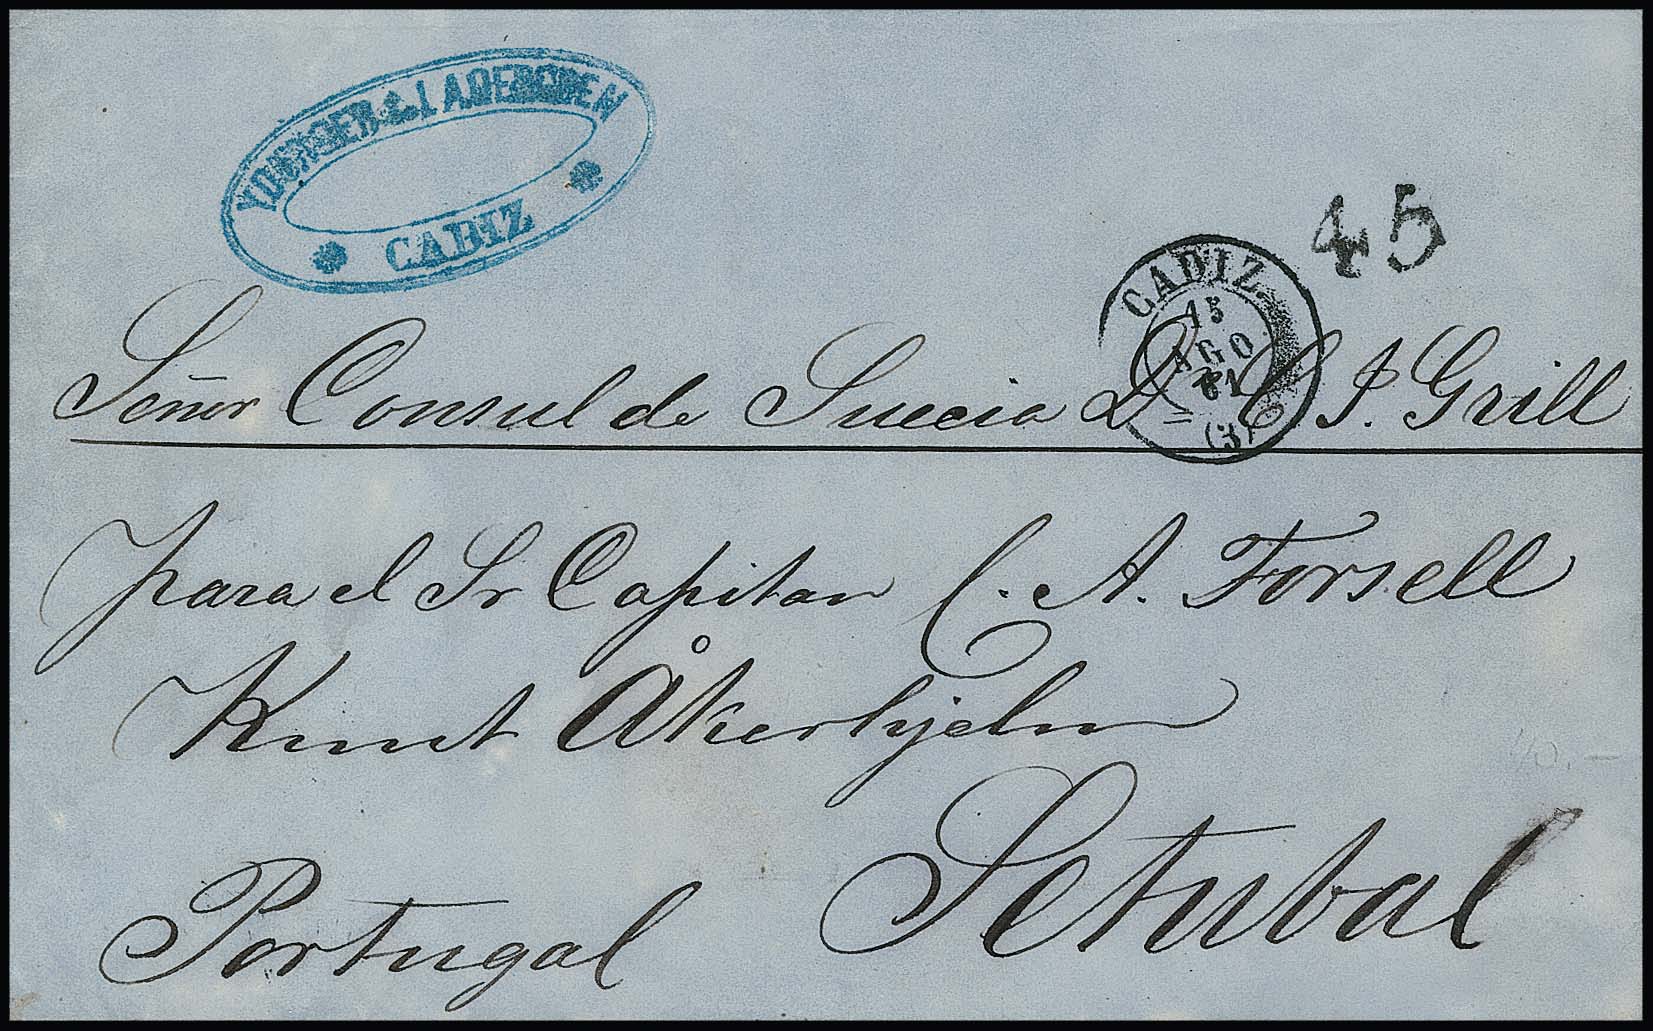 YOUNGER & LADEBODEN
CADIZ
45
CADIZ.
15
AGO
61
(3)
Señor Consul de Suecia Dn C. J. Grill
para el Sr Capitan C. A. Forsell
Knut Åkerhjelm
Setubal
Portugal